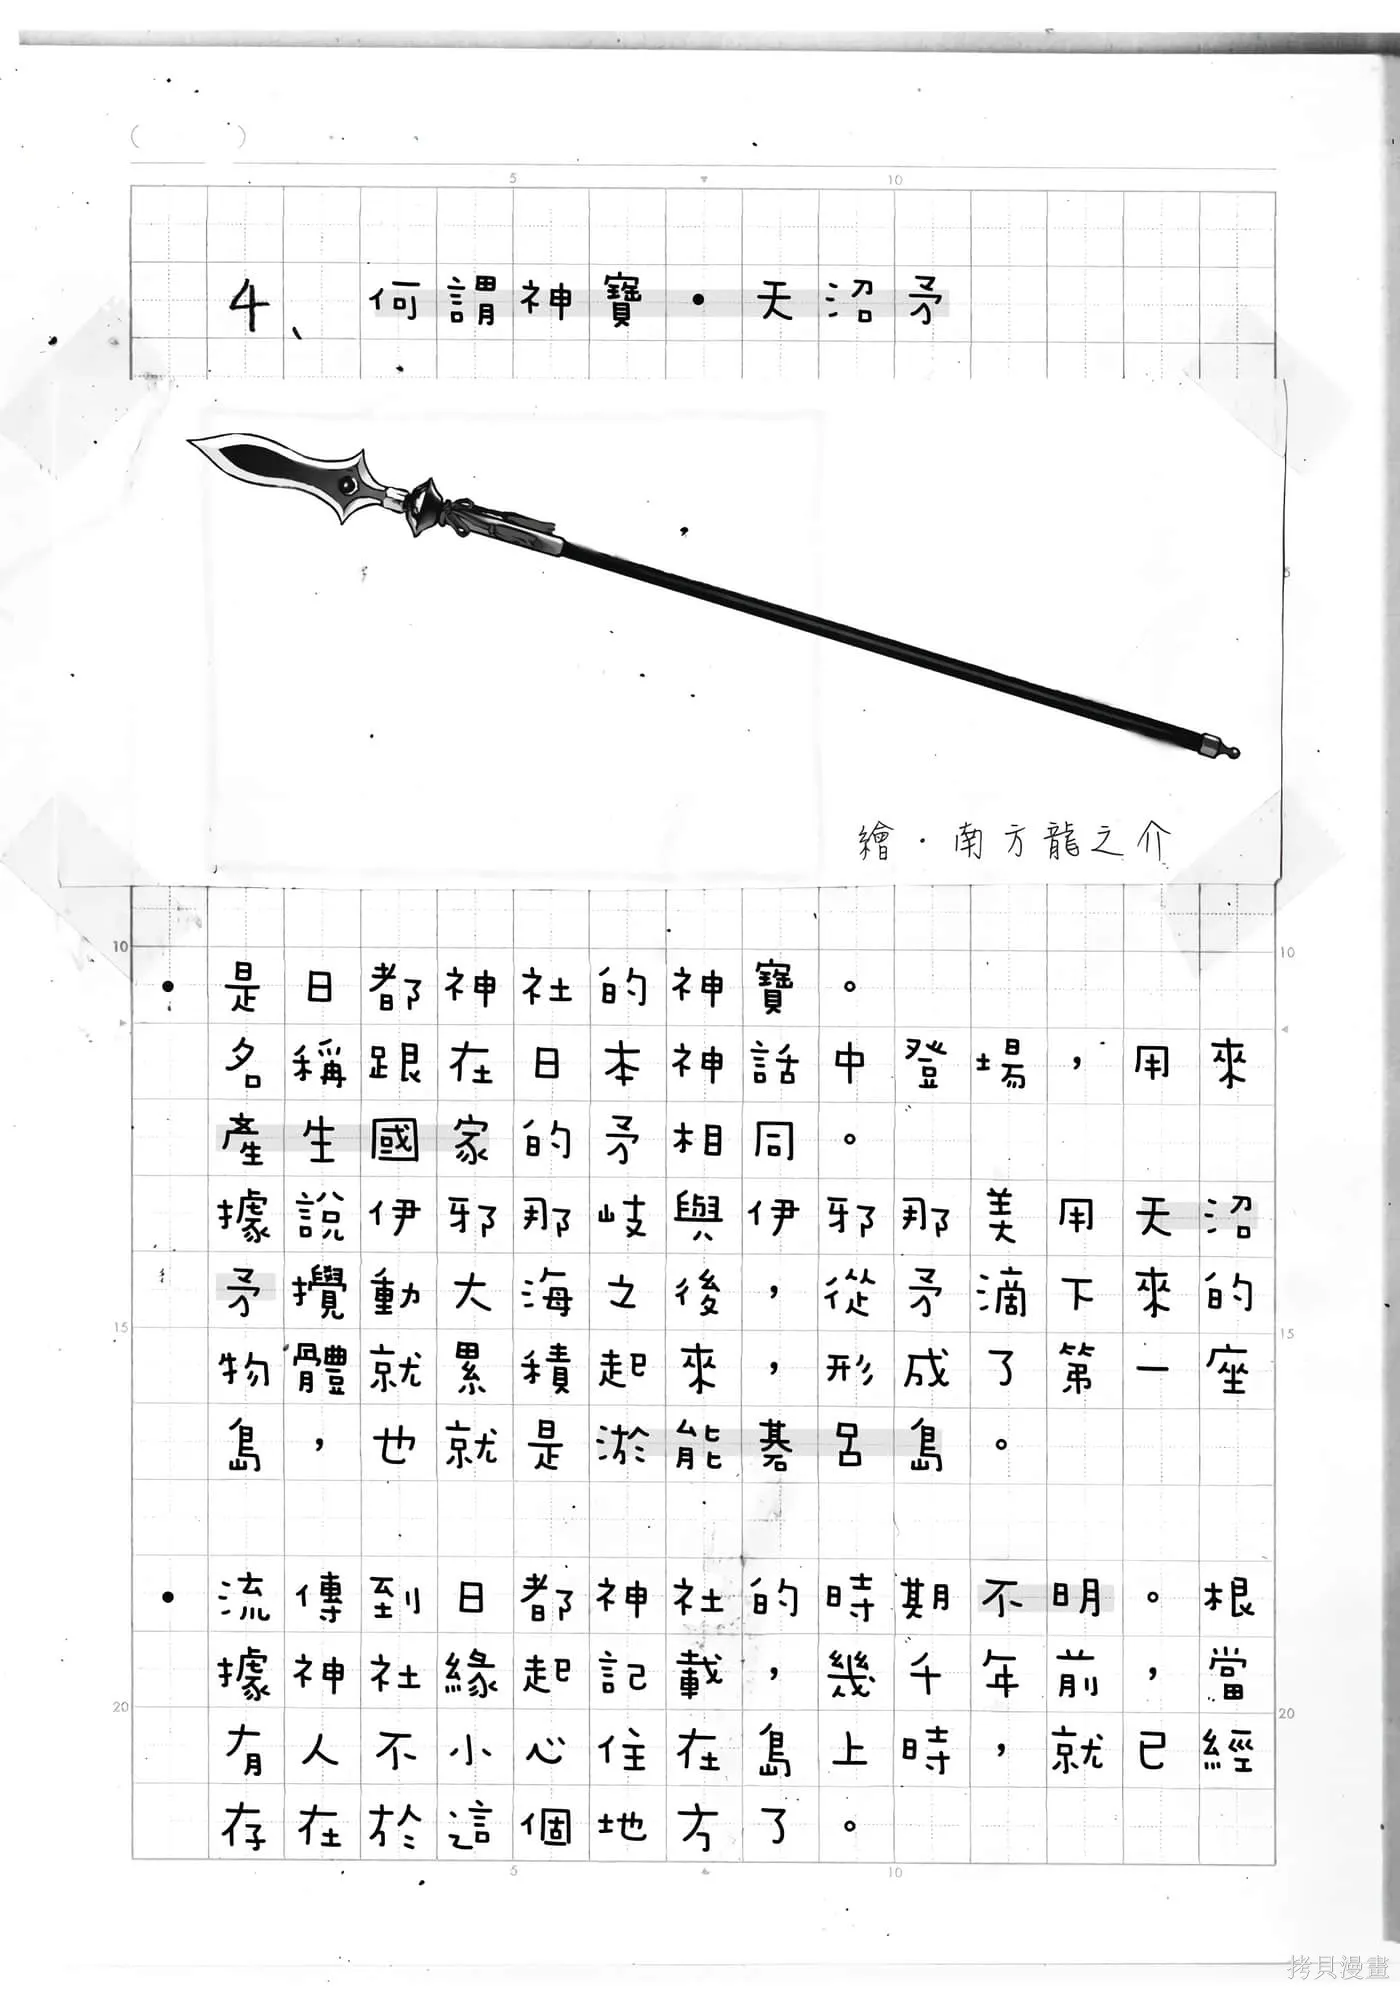 ( )
5 10
4、何謂神寶・天沼矛
5
繪・南方龍之介
10 10
・是日都神社的神寶。
名稱跟在日本神話中登場，用來
產生國家的矛相同。
據說伊邪那岐與伊邪那美用天沼
矛攪動大海之後，從矛滴下來的
15 15
物體就累積起來，形成了第一座
島，也就是淤能碁呂島。
・流傳到日都神社的時期不明。根
據神社緣起記載，幾千年前，當
20 20
有人不小心住在島上時，就已經
存在於這個地方了。
5 10
拷貝漫畫